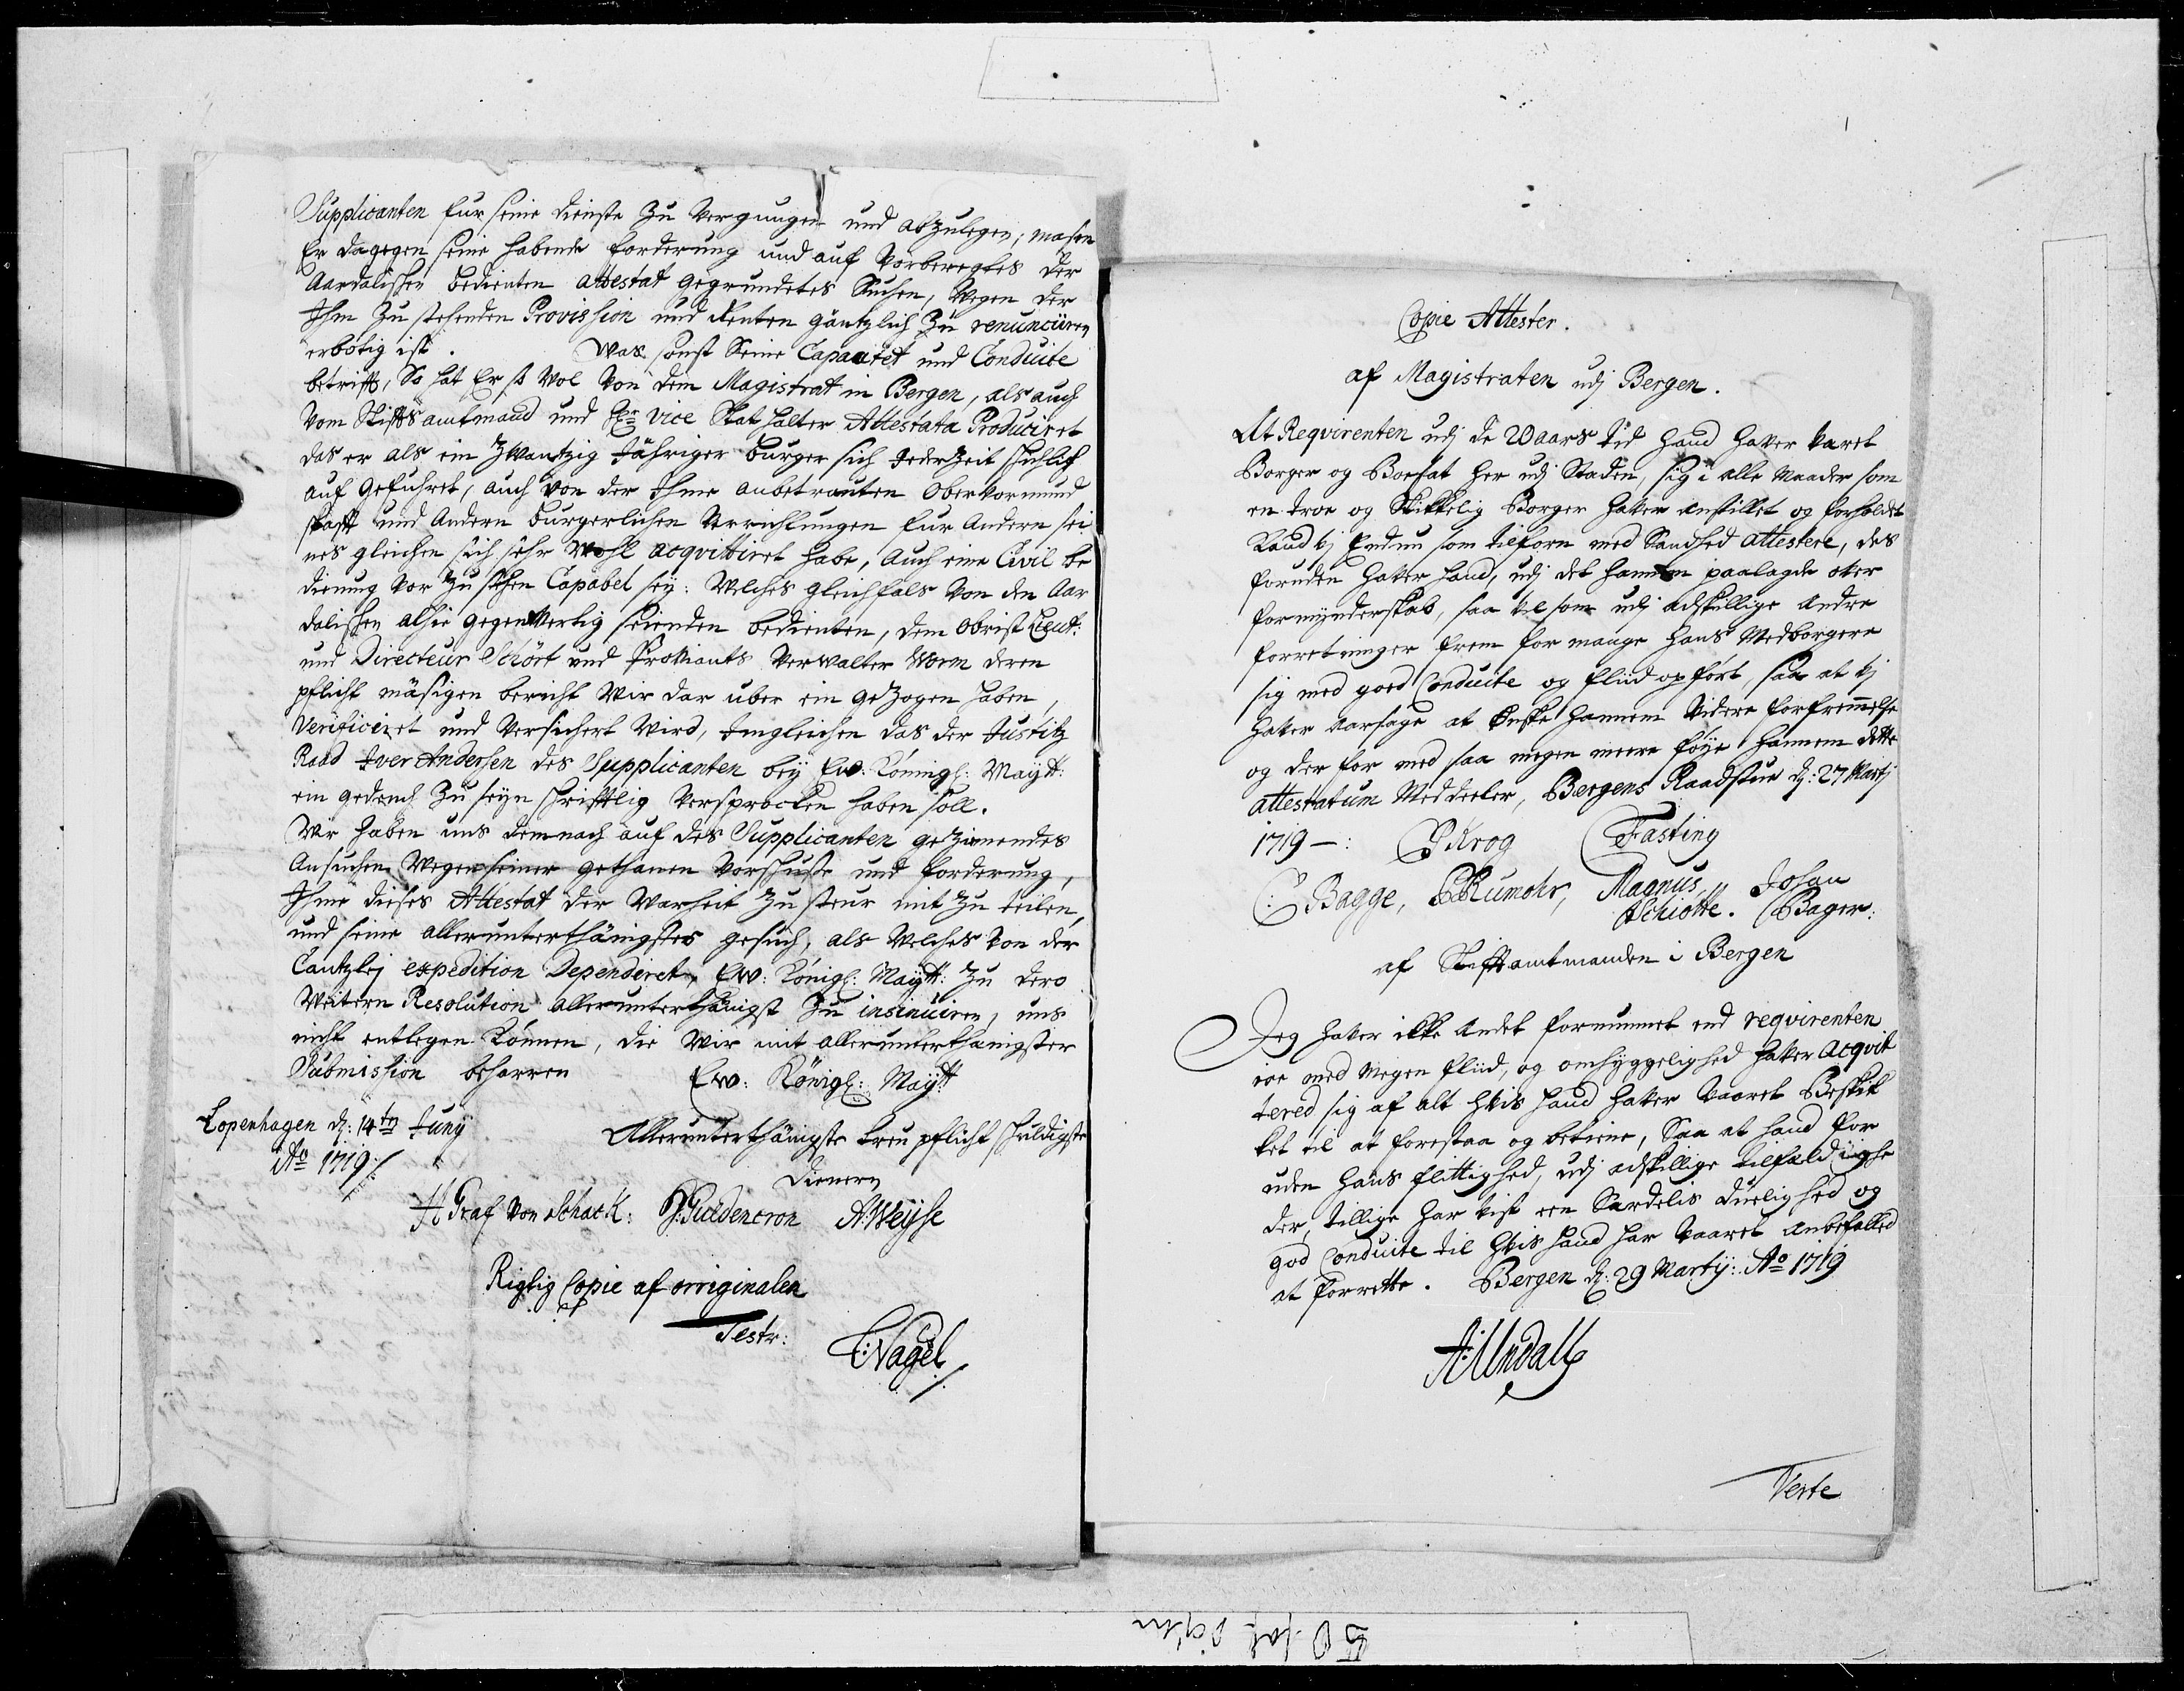 Supplicanten fur seine dienste zu vergnugen und abzulegen, masen
Er dagegen seine habende forderung und auf Vorberegtes der
Aardalischen bedienten attestat gegrundetes Suchen, Wegen der
Ihm zu stehenden Provission und Renten gäntzlich zu renunciiren
erbötig ist. Was sonst Seine Capacitet und Conduite
betrifft, So hat Er so Wol Von dem Magistrat in Bergen, als auch
Vom Stiffts amtmand und Hr vice Stathalter Attestata Produciret
das er als ein Zwantzig Jähriger burger sich Jederzeit ehrlich
auf gefuhret, auch Von der Ihme anbetrauten Obervormund
schafft und Andern burgerlichen Verrichtungen fur Andern sei
nes gleichen sich sehr Wohl acqvittiret habe, Auch eine Civil be
dienung Vor zu stehen Capabel sey: Welches gleichfals Von den Aar
dalischen alhie gegenwertig seienden bedienten, dem Obrist Lieut:
und Directeur Schört und Proviants Verwalter Worm deren
pflicht mäsigen bericht Wir dar uber ein gezogen haben,
Verificiret und Versichert Wird, Imgleichen das der Justitz
Raad Iver Andersen des Supplicanten bey Ew: Königl: Maytt:
ein gedenck zu seyn schrifftlig Versprocken haben soll.
Wir haben uns demnach auf des Supplicanten gezimendes
Ansuchen Wegen seiner gethanen Vorschuste und forderung,
Ihme dieses Attestat der Warheit zu steur mit zu teilen,
und seine allerunterthänigstes gesuch, als Welches Von der
Cantzley expedition Dependeret, Ew: Königl: Maytt: Zu dero
Weitern Resolution allerunterthänigst Zu insinuiren, uns
nicht entlegen Können, die Wir mit allerunterthänigster
Submission beharren Ew: Königl: Maytt
Copenhagen d: 14ten Juny
Ao 1719
Allerunterthänigste treu pflicht schuldigste
Dienern
H Graf Von Schack: J:Guldencron A:Weyse
Rigtig Copie af orriginalen
Testr:
C:Nagel
Copie Attester.
af Magistraten udj Bergen.
At Reqvirenten udj de 20 aars tid hand haver Været
Borger og Boesat her udj Staden, sig i alle Maader som
en troe og Skikkelig Borger haver anstillet og forholdet
Kand Vj Endnu som tilforn med Sandhed attestere, des
foruden haver hand, udj det hannem paalagde over
formynderskab, saa Vel som udj adskillige andre
forretninger frem for mange hans Medborgere
sig med goed Conduite og fliid opfört, saa at Vj
haver aarsage at Önske hannem Videre forfremmelse
og der for med saa megen meere föye hannem dette
attestatum Meddeeler, Bergens Raadstue d: 27 Martj
1719 —: P Krog C Fasting
C: Bagge, Rumohr, Magnus Schiötte. Johan Bager:
af Stifftamtmanden i Bergen
Jeg haver ikke andet fornummet end reqvirenten
ioe med Megen fliid, og omhyggelighed haver acqvit
tered sig af alt hvis hand haver Vaaret Beskik
ket til at forestaa og betiene, Saa at hand for
uden hans flittighed, udj adskillige tilfældighe
der, tillige har Vist een Særdelis duelighed og
god Conduite til hvis hand har Vaaret anbefalled
at forrette. Bergen d: 29 Martij: Ao 1719
A: Undall
Verte